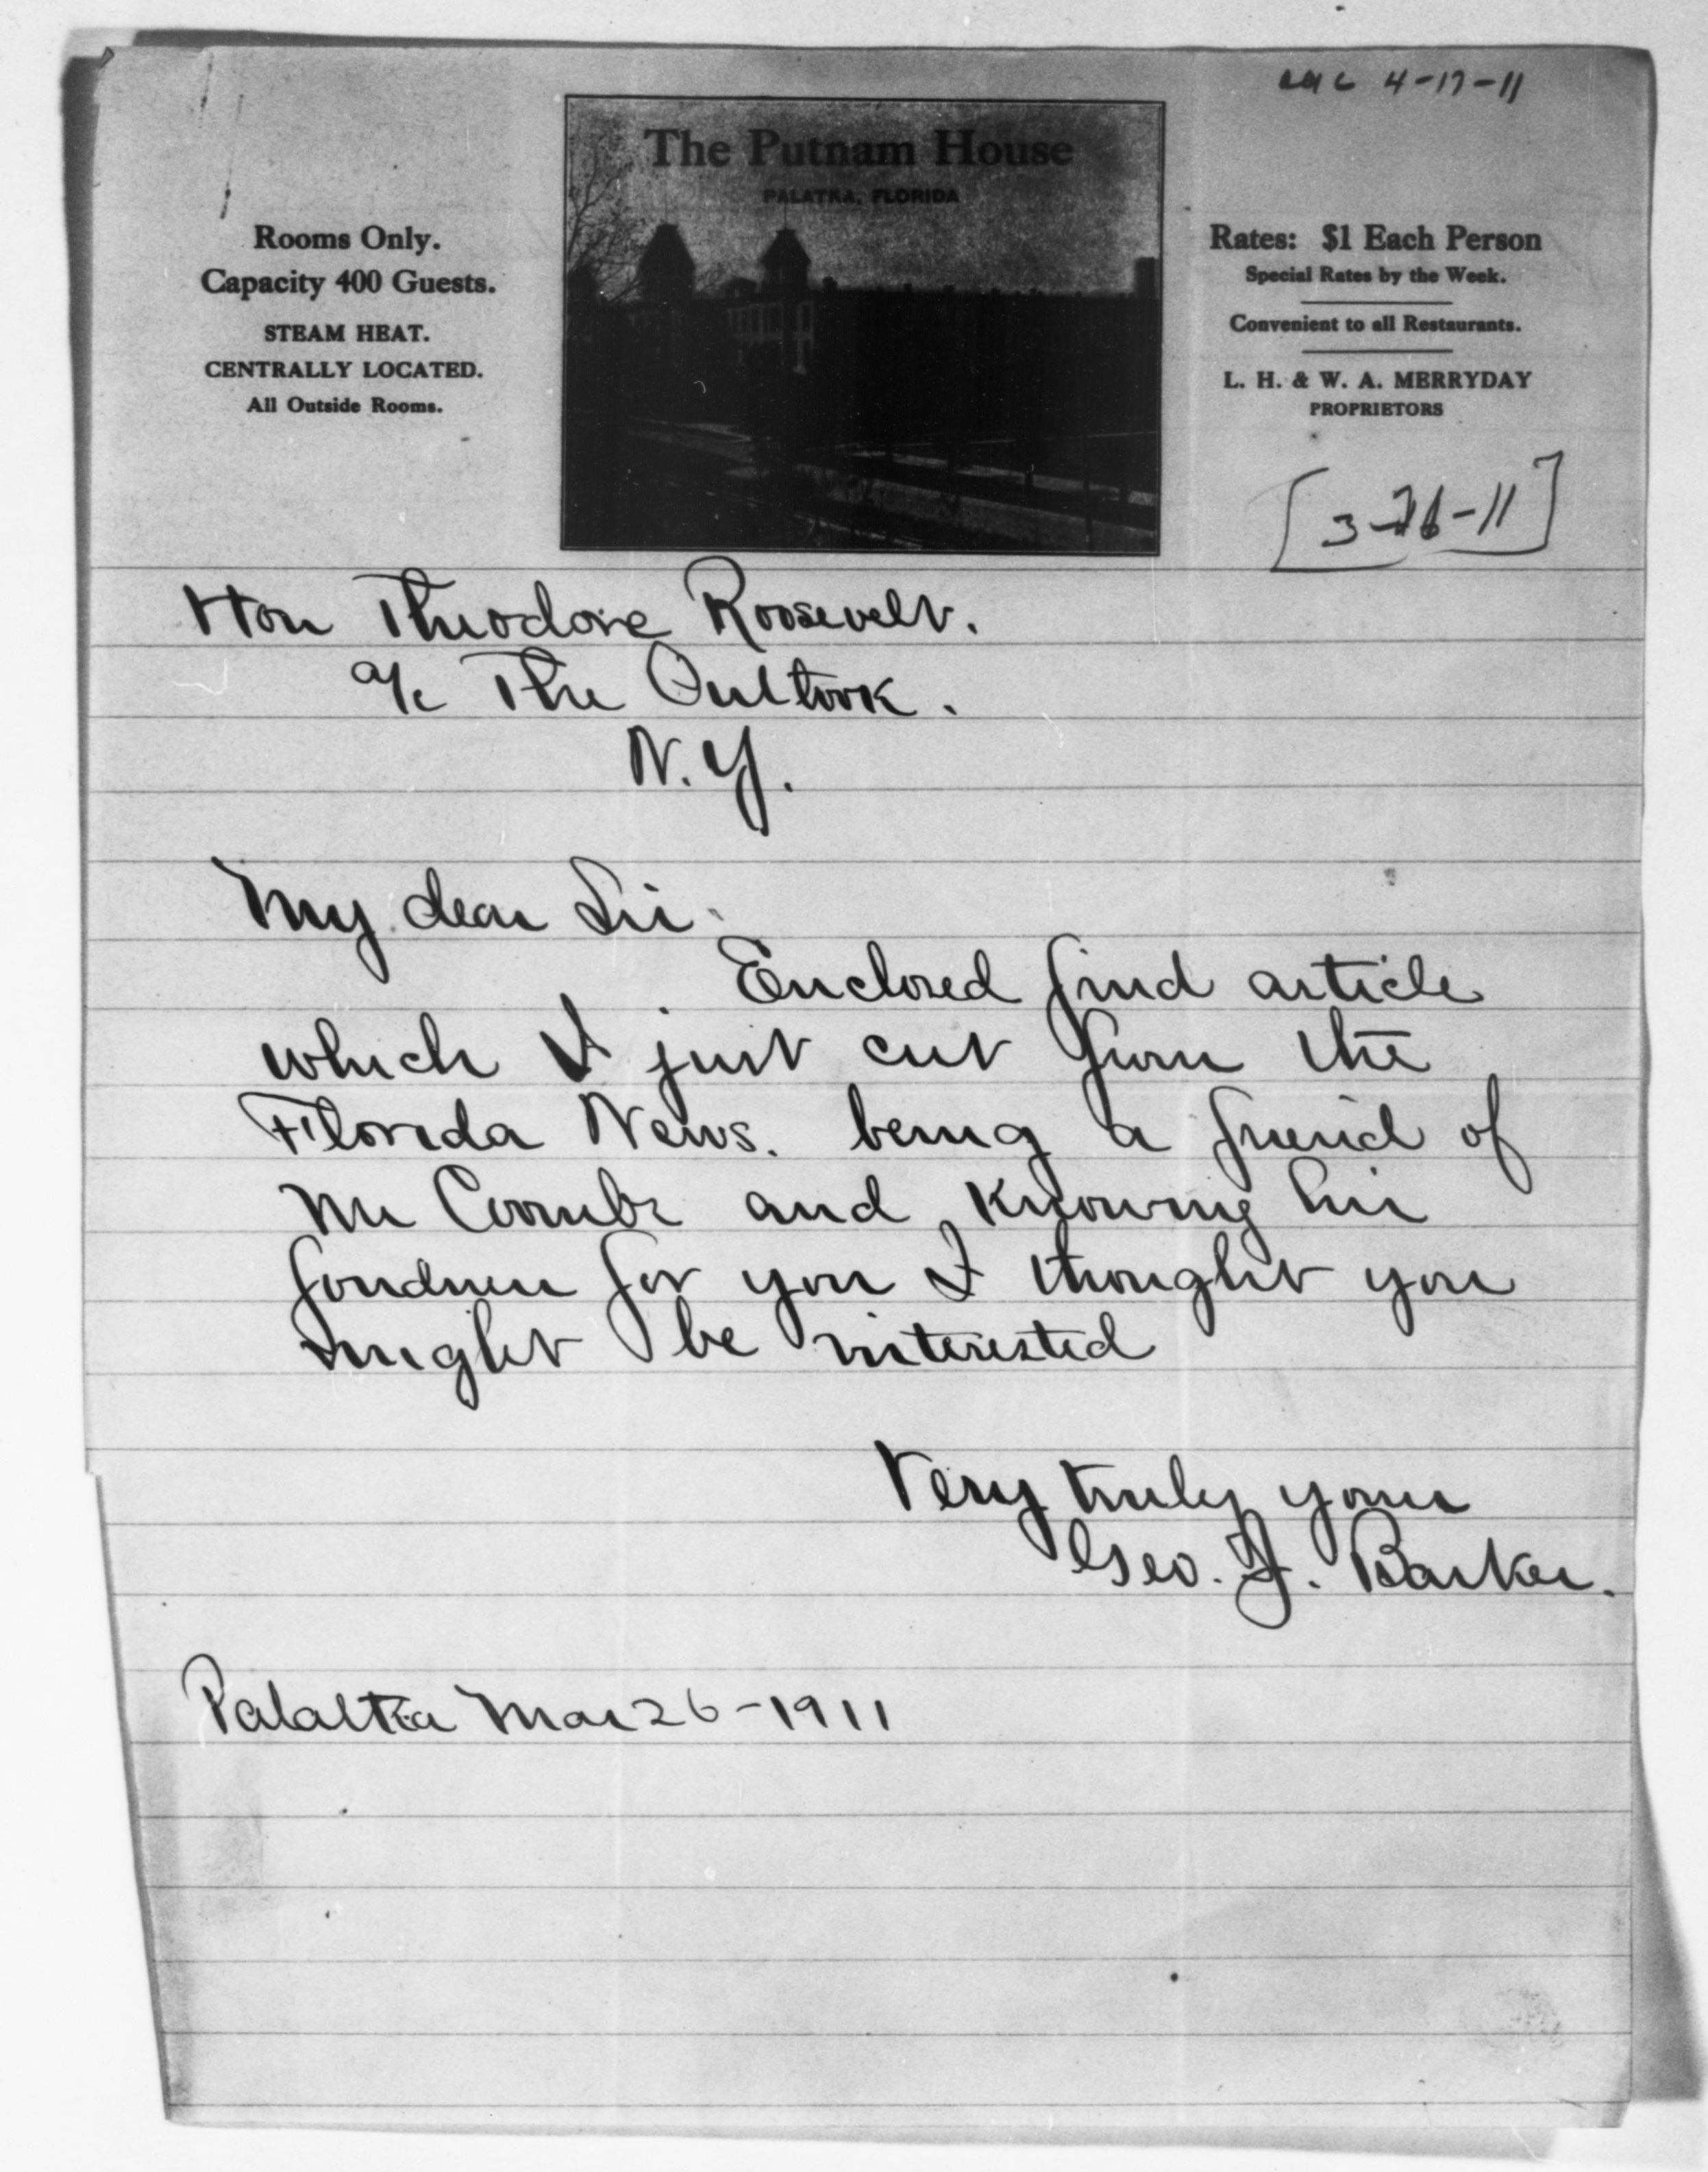 4-17-11
The Putnam House
PALATKA, FLORIDA
Rooms Only.
Capacity 400 Guests.
STEAM HEAT.
CENTRALLY LOCATED.
All Outside Rooms.
Rates: $1 Each Person
Special Rates by the Week.
Convenient to all Restaurants.
L. H. & W. A. MERRYDAY
PROPRIETORS
[3-26-11]
Hon Theodore Roosevelt.
a/c The Outlook.
N.Y.
My dear Sir.
Enclosed find article
which I just cut from the
Florida News. being a friend of
Mr Coombs and knowing his
fondness for you I thought you
might be interested
Very truly yours
Geo. J. Barker.
Palatka Mar 26-1911